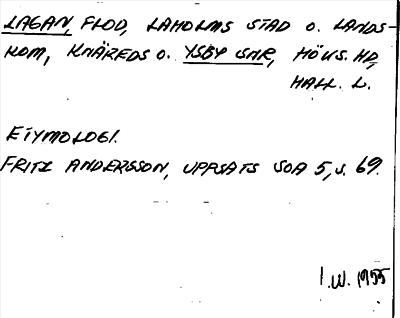 LAGAN, FLOD, LAHOLMS STAD O. LANDS-
KOM, KNÄREDS O. YSBY SNR, HÖKS. HD,
HALL. L.
ETYMOLOGI.
FRITZ ANDERSSON, UPPSATS SOA 5, S. 69.
I.W. 1955